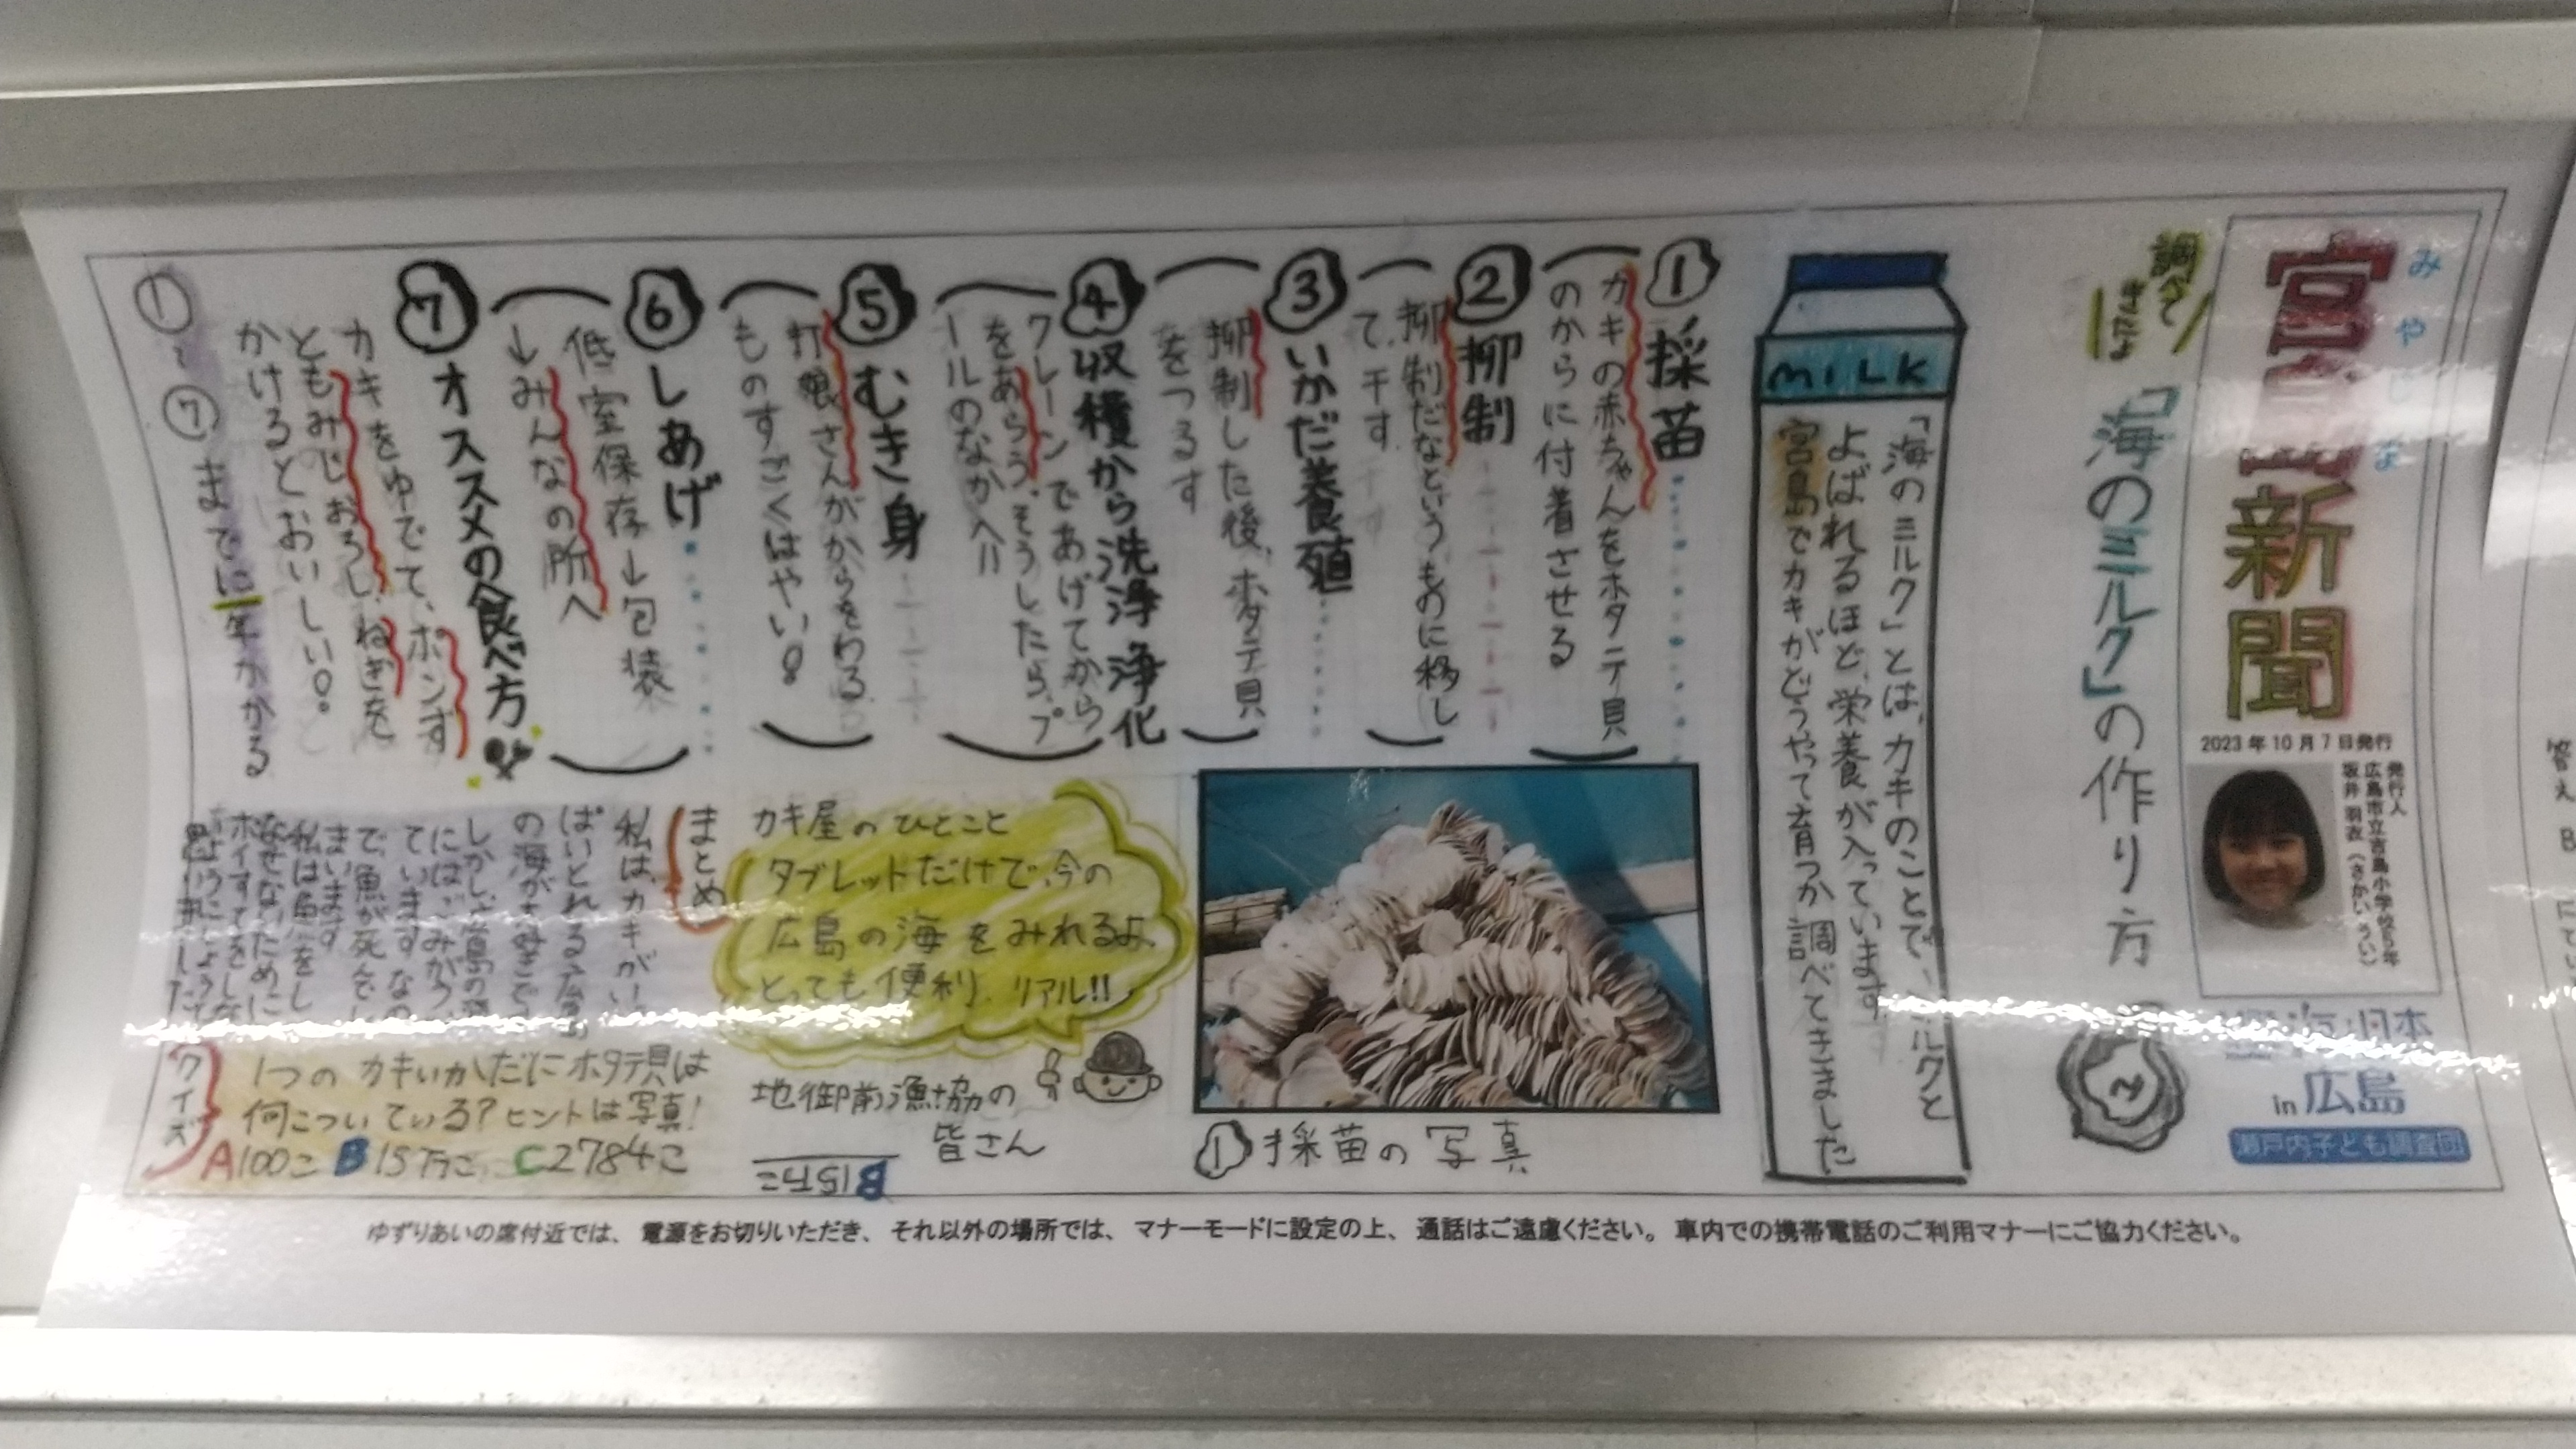 みやじま
宮島新聞
2023年10月7日発行
発行人
広島市立吉島小学校5年
坂井 羽衣（さかい うい）
海と日本
in 広島
瀬戸内子ども調査団
調べ
きたよ
「海のミルク」の作り方
MILK
「海のミルク」とは、カキのことで、ミルクと
よばれるほど、栄養が入っています。
宮島でカキがどうやって育つか調べてきました
①採苗
カキの赤ちゃんをホタテ貝
のからに付着させる
②抑制
抑制だなというものに移し
て、干す
③いかだ養殖
抑制した後、ホタテ貝
をつるす
④収穫から洗浄 浄化
クレーンであげてから
をあらう。そうしたら、プ
ールのなかへ!!
⑤むき身
打娘さんがからをわる
ものすごくはやい！
⑥しあげ
低室保存→包装
→みんなの所へ
⑦オススメの食べ方
カキをゆでて、ポンず
ともみじおろし、ねぎを
かけるとおいしい！。
①〜⑦までに一年かかる
①採苗の写真
カキ屋のひとこと
タブレットだけで、今の
広島の海をみれるよ、
とっても便利、リアル!!
地御前漁協の
皆さん
まとめ
私は、カキがいっ
ぱいとれる広島
の海が大好きです
しかし、広島の海
にはごみがうい
ています。なの
で、魚が死んでし
まいます
私は魚をし
なせないために
ポイすてをしな
いようにしようと
思いました
クイズ
1つのカキいかだにホタテ貝は
何こついている？ヒントは写真！
A100こ B15万こ C2784こ
B15万こ
ゆずりあいの席付近では、電源をお切りいただき、それ以外の場所では、マナーモードに設定の上、通話はご遠慮ください。車内での携帯電話のご利用マナーにご協力ください。